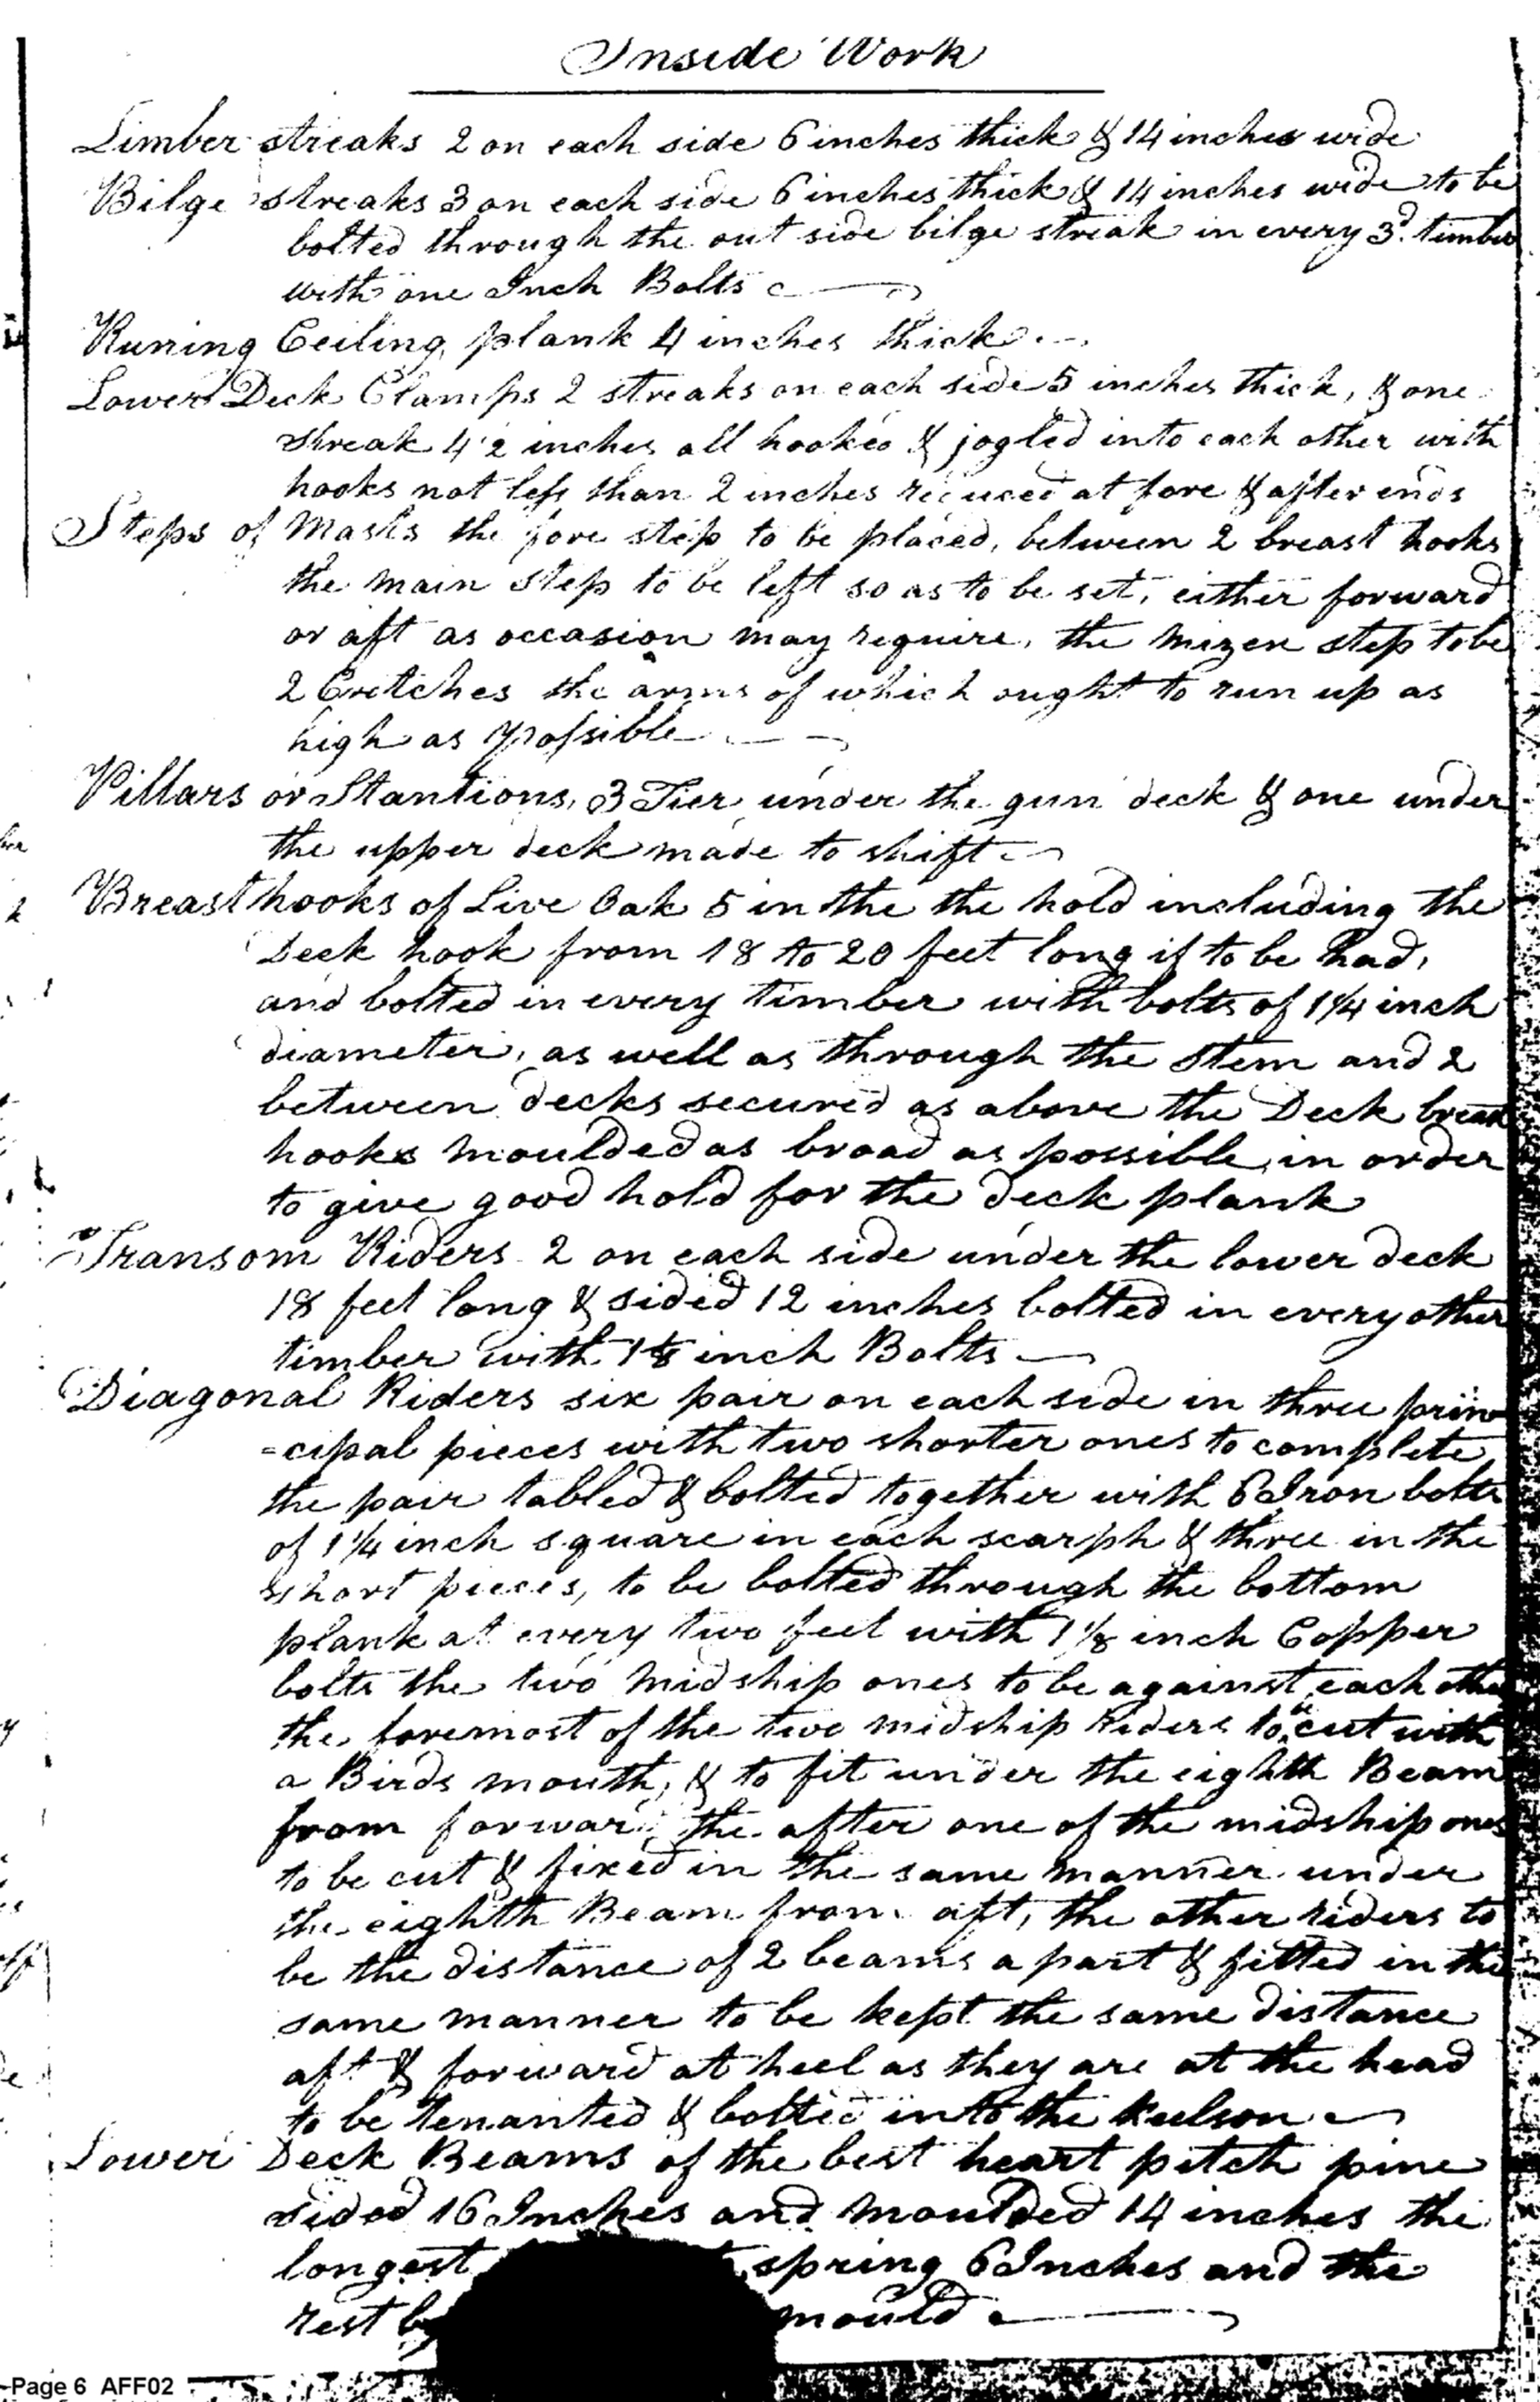 Inside Work
Limber streaks 2 on each side 6 inches thick & 14 inches wide
Bilge streaks 3 on each side 6 inches thick & 14 inches wide to be
bolted through the out side bilge streak in every 3d. timber
with one Inch Bolts
Runing Ceiling plank 4 inches thick
Lower Deck Clamps 2 streaks on each side 5 inches thick, & one
streak 4 1/2 inches all hooked & jogled into each other with
hooks not less than 2 inches reduced at fore & after ends
Steps of Masts the fore step to be placed, between 2 breast hooks
the main step to be left so as to be set, either forward
or aft as occasion may require, the mizen step to be
2 Crotches the arms of which ought to run up as
high as possible
Pillars or Stantions, 3 Tier under the gun deck & one under
the upper deck made to shift
Breast hooks of Live Oak 5 in the the hold including the
Deck hook from 18 to 20 feet long if to be had,
and bolted in every timber with bolts of 1 1/4 inch
diameter, as well as through the Stem and 2
between decks secured as above the Deck breast
hooks moulded as broad as possible in order
to give good hold for the deck plank
Transom Riders 2 on each side under the lower deck
18 feet long & sided 12 inches bolted in every other
timber with 1 1/8 inch Bolts
Diagonal Riders six pair on each side in three prin
=cipal pieces with two shorter ones to complete
the pair tabled & bolted together with 6 Iron bolts
of 1 1/4 inch square in each scarph & three in the
short pieces, to be bolted through the bottom
plank at every two feet with 1 1/8 inch Copper
bolts the two midship ones to be against each other
the foremost of the two midship Riders to be cut with
a Birds mouth, & to fit under the eighth Beam
from forward the after one of the midship ones
to be cut & fixed in the same manner under
the eighth Beam from aft, the other riders to
be the distance of 2 beams a part & fitted in the
same manner to be kept the same distance
aft & forward at heel as they are at the head
to be tenanted & bolted into the keelson
Lower Deck Beams of the best heart pitch pine
sided 16 Inches and moulded 14 inches the
longest spring 6 Inches and the
rest by mould
-Page 6 AFF02